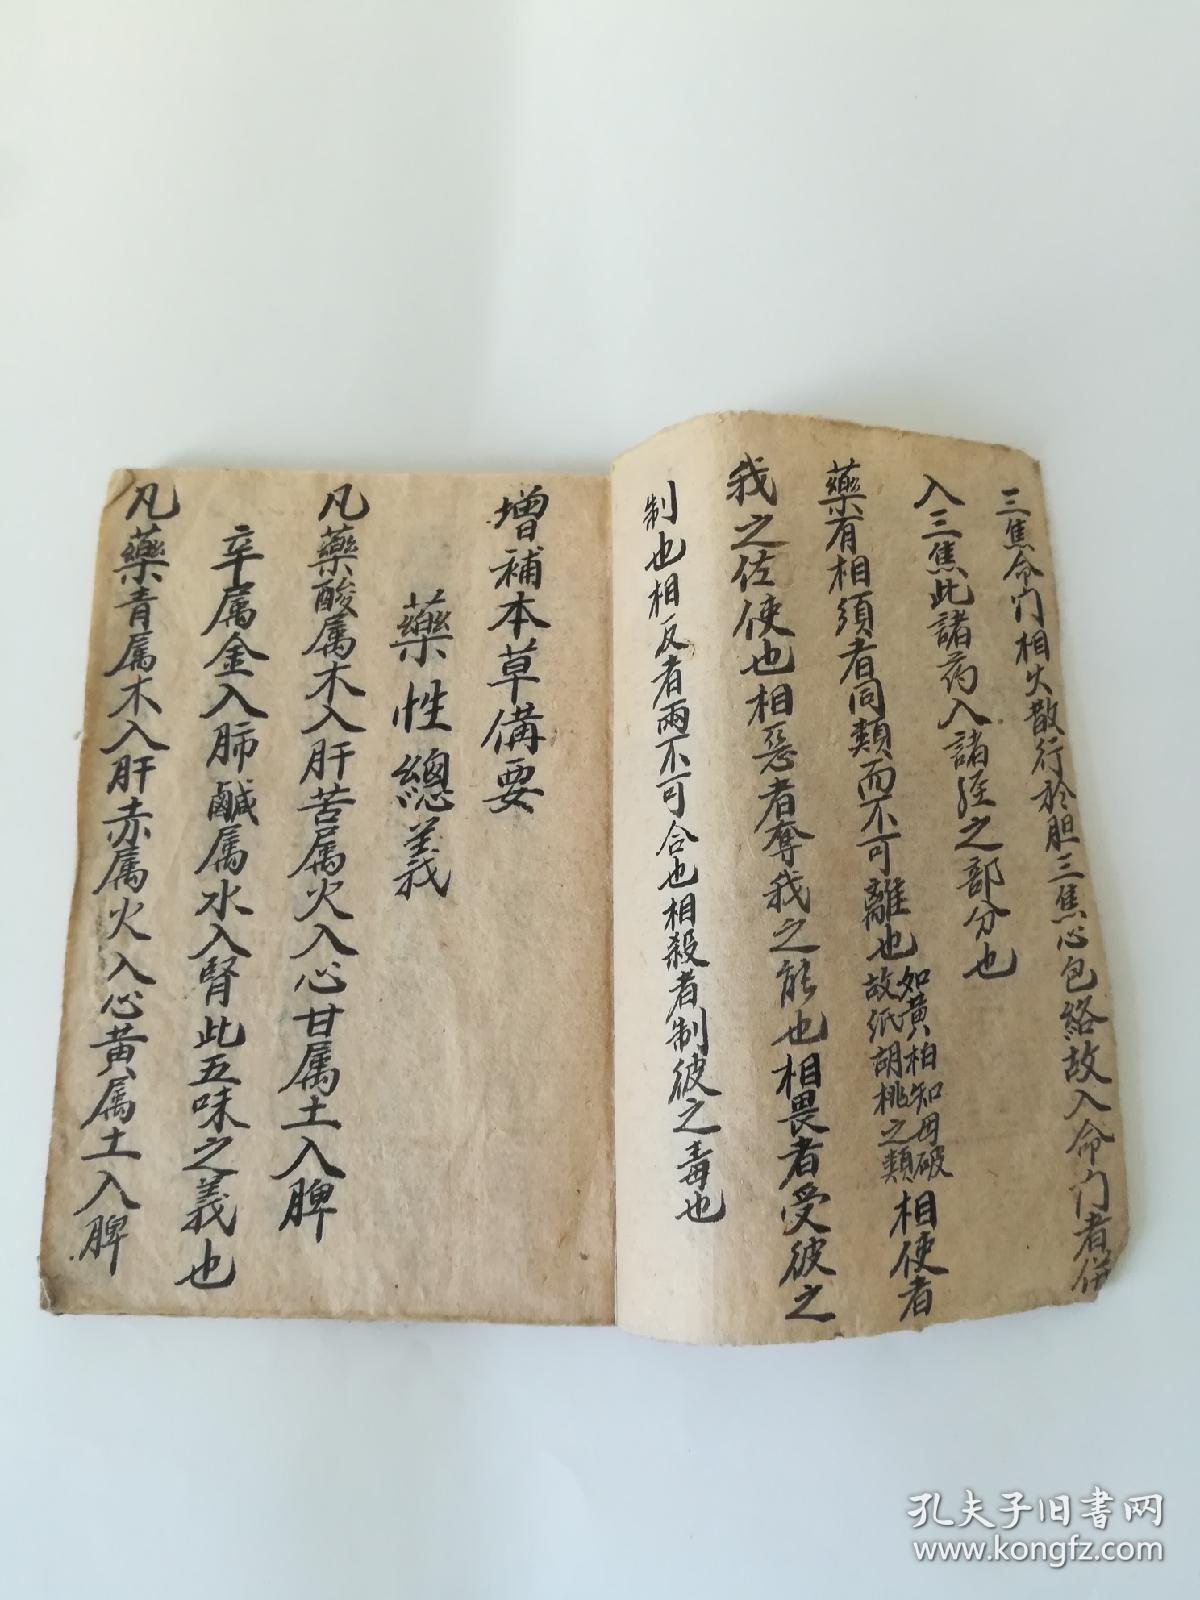 三焦命门相火散行於胆三焦心包络故入命门者併
入三焦此諸药入諸经之部分也
藥有相須者同類而不可離也如黄柏知母破故纸胡桃之類相使者
我之佐使也相惡者奪我之能也相畏者受彼之
制也相反者兩不可合也相殺者制彼之毒也
增補本草備要
藥性總義
凡藥酸属木入肝苦属火入心甘属土入脾
辛属金入肺鹹属水入腎此五味之義也
凡藥青属木入肝赤属火入心黄属土入脾
孔夫子旧书网
www.kongfz.com